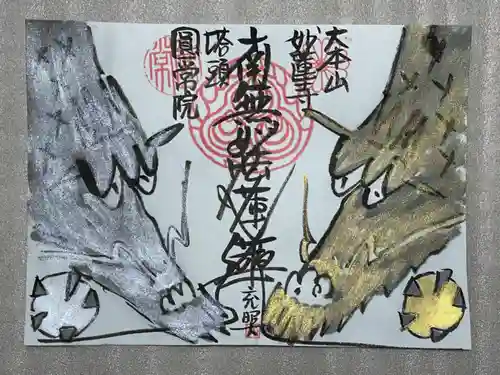 大本山
妙蓮寺
南無妙法蓮華経
塔頭
圓常院
充照